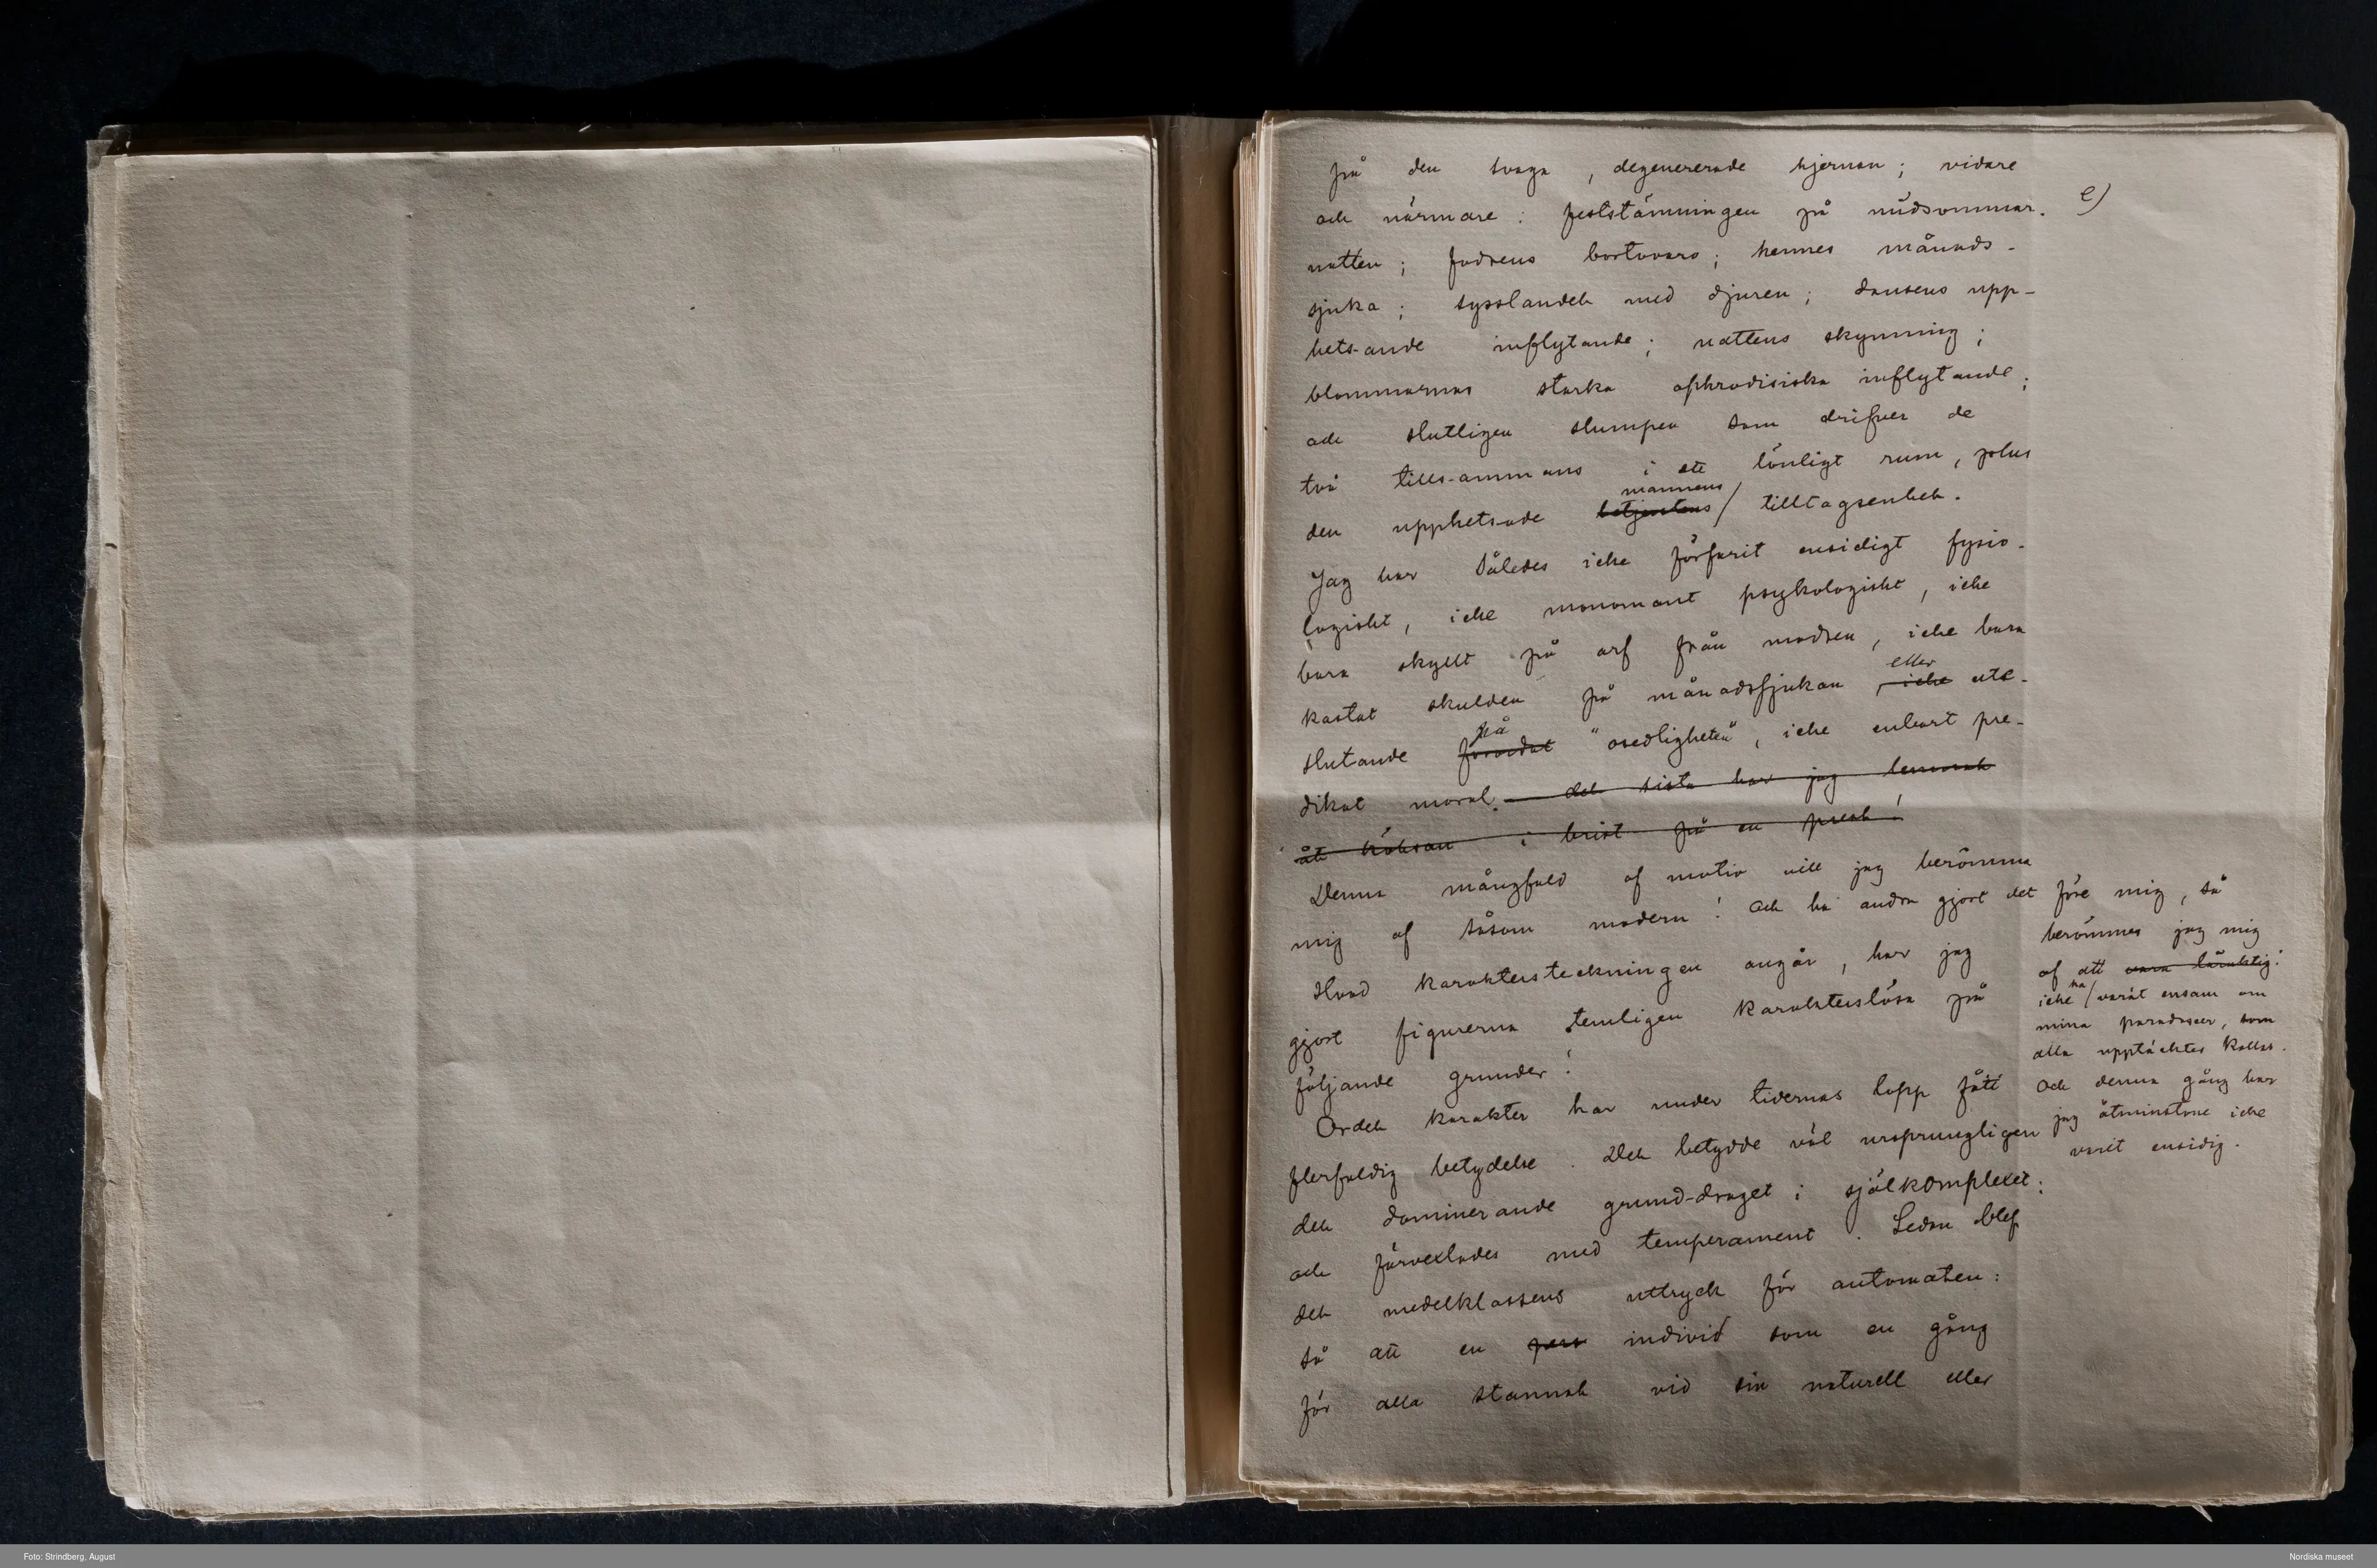 på den svaga, degenererade hjernan; vidare
e)
och närmare: feststämningen på midsommar-
natten; fadrens bortovaro; hennes månads-
sjuka; sysslandet med djuren; dansens upp-
hets-ande inflytande; nattens skymning;
blommornas starka aphrodisiska inflytande;
och slutligen slumpen som drifver de
två tills-ammans i ett lönligt rum, plus
mannens
den upphetsade betjentens/ tilltagsenhet.
Jag har således icke förfarit ensidigt fysio-
logiskt, icke monomant psykologiskt, icke
bara skyllt på arf från modren, icke bara
eller
kastat skulden på månadssjukan, icke ute-
på
slutande "osedligheten", icke enbart pre-
dikat moral. det sista har jag lemnat
åt köksan i brist på en prest!
Denna mångfald af motiv vill jag berömma
mig af såsom modern! Och ha andra gjort det före mig, så
berömmer jag mig
af att vara
icke ha/ varit ensam om
mina paradoxer, som
alla upptäckter kallas.
Och denna gång har
jag åtminstone icke
varit ensidig.
Hvad karaktersteckningen angår, har jag
gjort figurerna temligen karakterslösa på
följande grunder:
Ordet karakter har under tidernas lopp fått
flerfaldig betydelse. Det betydde väl ursprungligen
det dominerande grund-draget i själkomplexet;
och förvexlades med temperament. Sedan blef
det medelklassens uttryck för automaten:
så att en pers individ som en gång
för alla stannat vid sin naturell eller
Foto: Strindberg, August
Nordiska museet